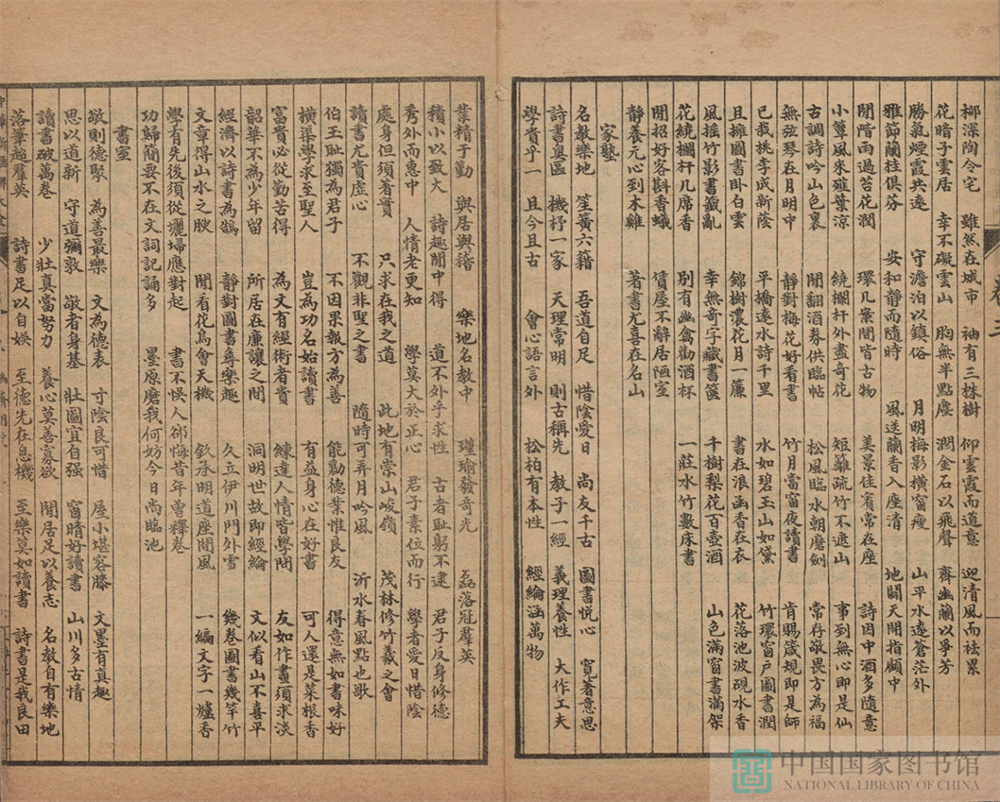 柳深陶令宅　雖然在城市　袖有三株樹　仰雲霞而道意　迎清風而祛累
花暗子雲居　幸不礙雲山　胸無半點塵　潤金石以飛聲　齊幽蘭以爭芳
勝氣煙霞共遠　守澹泊以鎮俗　月明梅影橫窗瘦　山平水遠蒼茫外
雅節蘭桂俱芬　安和靜而隨時　風送蘭香入座清　地闢天開指顧中
閒階雨過苔花潤　環几案間皆古物　美景佳賓常在座　詩因中酒多隨意
小簟風來薤葉涼　繞欄杆外盡奇花　短籬疏竹不遮山　事到無心即是仙
古調詩吟山色裏　閒翻酒券供臨帖　松風臨水朝磨劍　常存敬畏方為福
無弦琴在月明中　靜對梅花好看書　竹月當窗夜讀書　肯賜箴規即是師
已栽桃李成新蔭　平橋遠水詩千里　水如碧玉山如黛　竹環窗戶圖書潤
且擁圖書臥白雲　錦樹濃花月一簾　書在浪函香在衣　花落池波硯水香
風搖竹影書籤亂　幸無奇字藏書篋　千樹梨花百壺酒　山色滿窗書滿架
花繞欄杆几席香　別有幽禽勸酒杯　一莊水竹數床書
閒招好客斟香蟻　賃屋不辭居陋室
靜養元心到木雞　著書尤喜在名山
家塾
名教樂地　笙簧六籍　吾道自足　惜陰愛日　尚友千古　圖書悅心　寬著意思
詩書奧區　機杼一家　天理常明　則古稱先　教子一經　義理養性　大作工夫
學貴乎一　且今且古　會心語言外　松柏有本性　經綸涵萬物
業精于勤　與居與稽　樂地名教中　瑾瑜發奇光　磊落冠羣英
積小以致大　詩趣閒中得　道不外乎求性　古者恥躬不逮　君子反身修德
秀外而惠中　人情老更知　學莫大於正心　君子素位而行　學者愛日惜陰
處身但須著實　只求在我之道　此地有崇山峻嶺　茂林修竹羲之會
讀書尤貴虛心　不觀非聖之書　隨時可弄月吟風　沂水春風點也歌
伯玉恥獨為君子　不因果報方為善　能勸德業惟良友　得意無如書味好
橫渠學求至聖人　豈為功名始讀書　有益身心在好書　可人還是菜根香
富貴必從勤苦得　為文有經術者貴　練達人情皆學問　友如作畫須求淡
韶華不為少年留　所居在廉讓之間　洞明世故即經綸　文似看山不喜平
經濟以詩書為鵠　靜對圖書尋樂趣　久立伊川門外雪　幾卷圖書幾竿竹
文章得山水之腴　閒看花鳥會天機　欽承明道座間風　一編文字一爐香
學有先後須從灑埽應對起　書不悞人卻悔昔年曾釋卷
功歸簡要不在文詞記誦多　墨原磨我何妨今日尚臨池
書室
敬則德聚　為善最樂　文為德表　寸陰良可惜　屋小堪容膝　文墨有真趣
思以道新　守道彌敦　敬者身基　壯圖宜自强　窗晴好讀書　山川多古情
讀書破萬卷　少壯真當努力　養心莫善寡欲　閒居足以養志　名教自有樂地
落筆起羣英　詩書足以自娛　至德先在息機　至樂莫如讀書　詩書是我良田
卷二
中国国家图书馆
NATIONAL LIBRARY OF CHINA